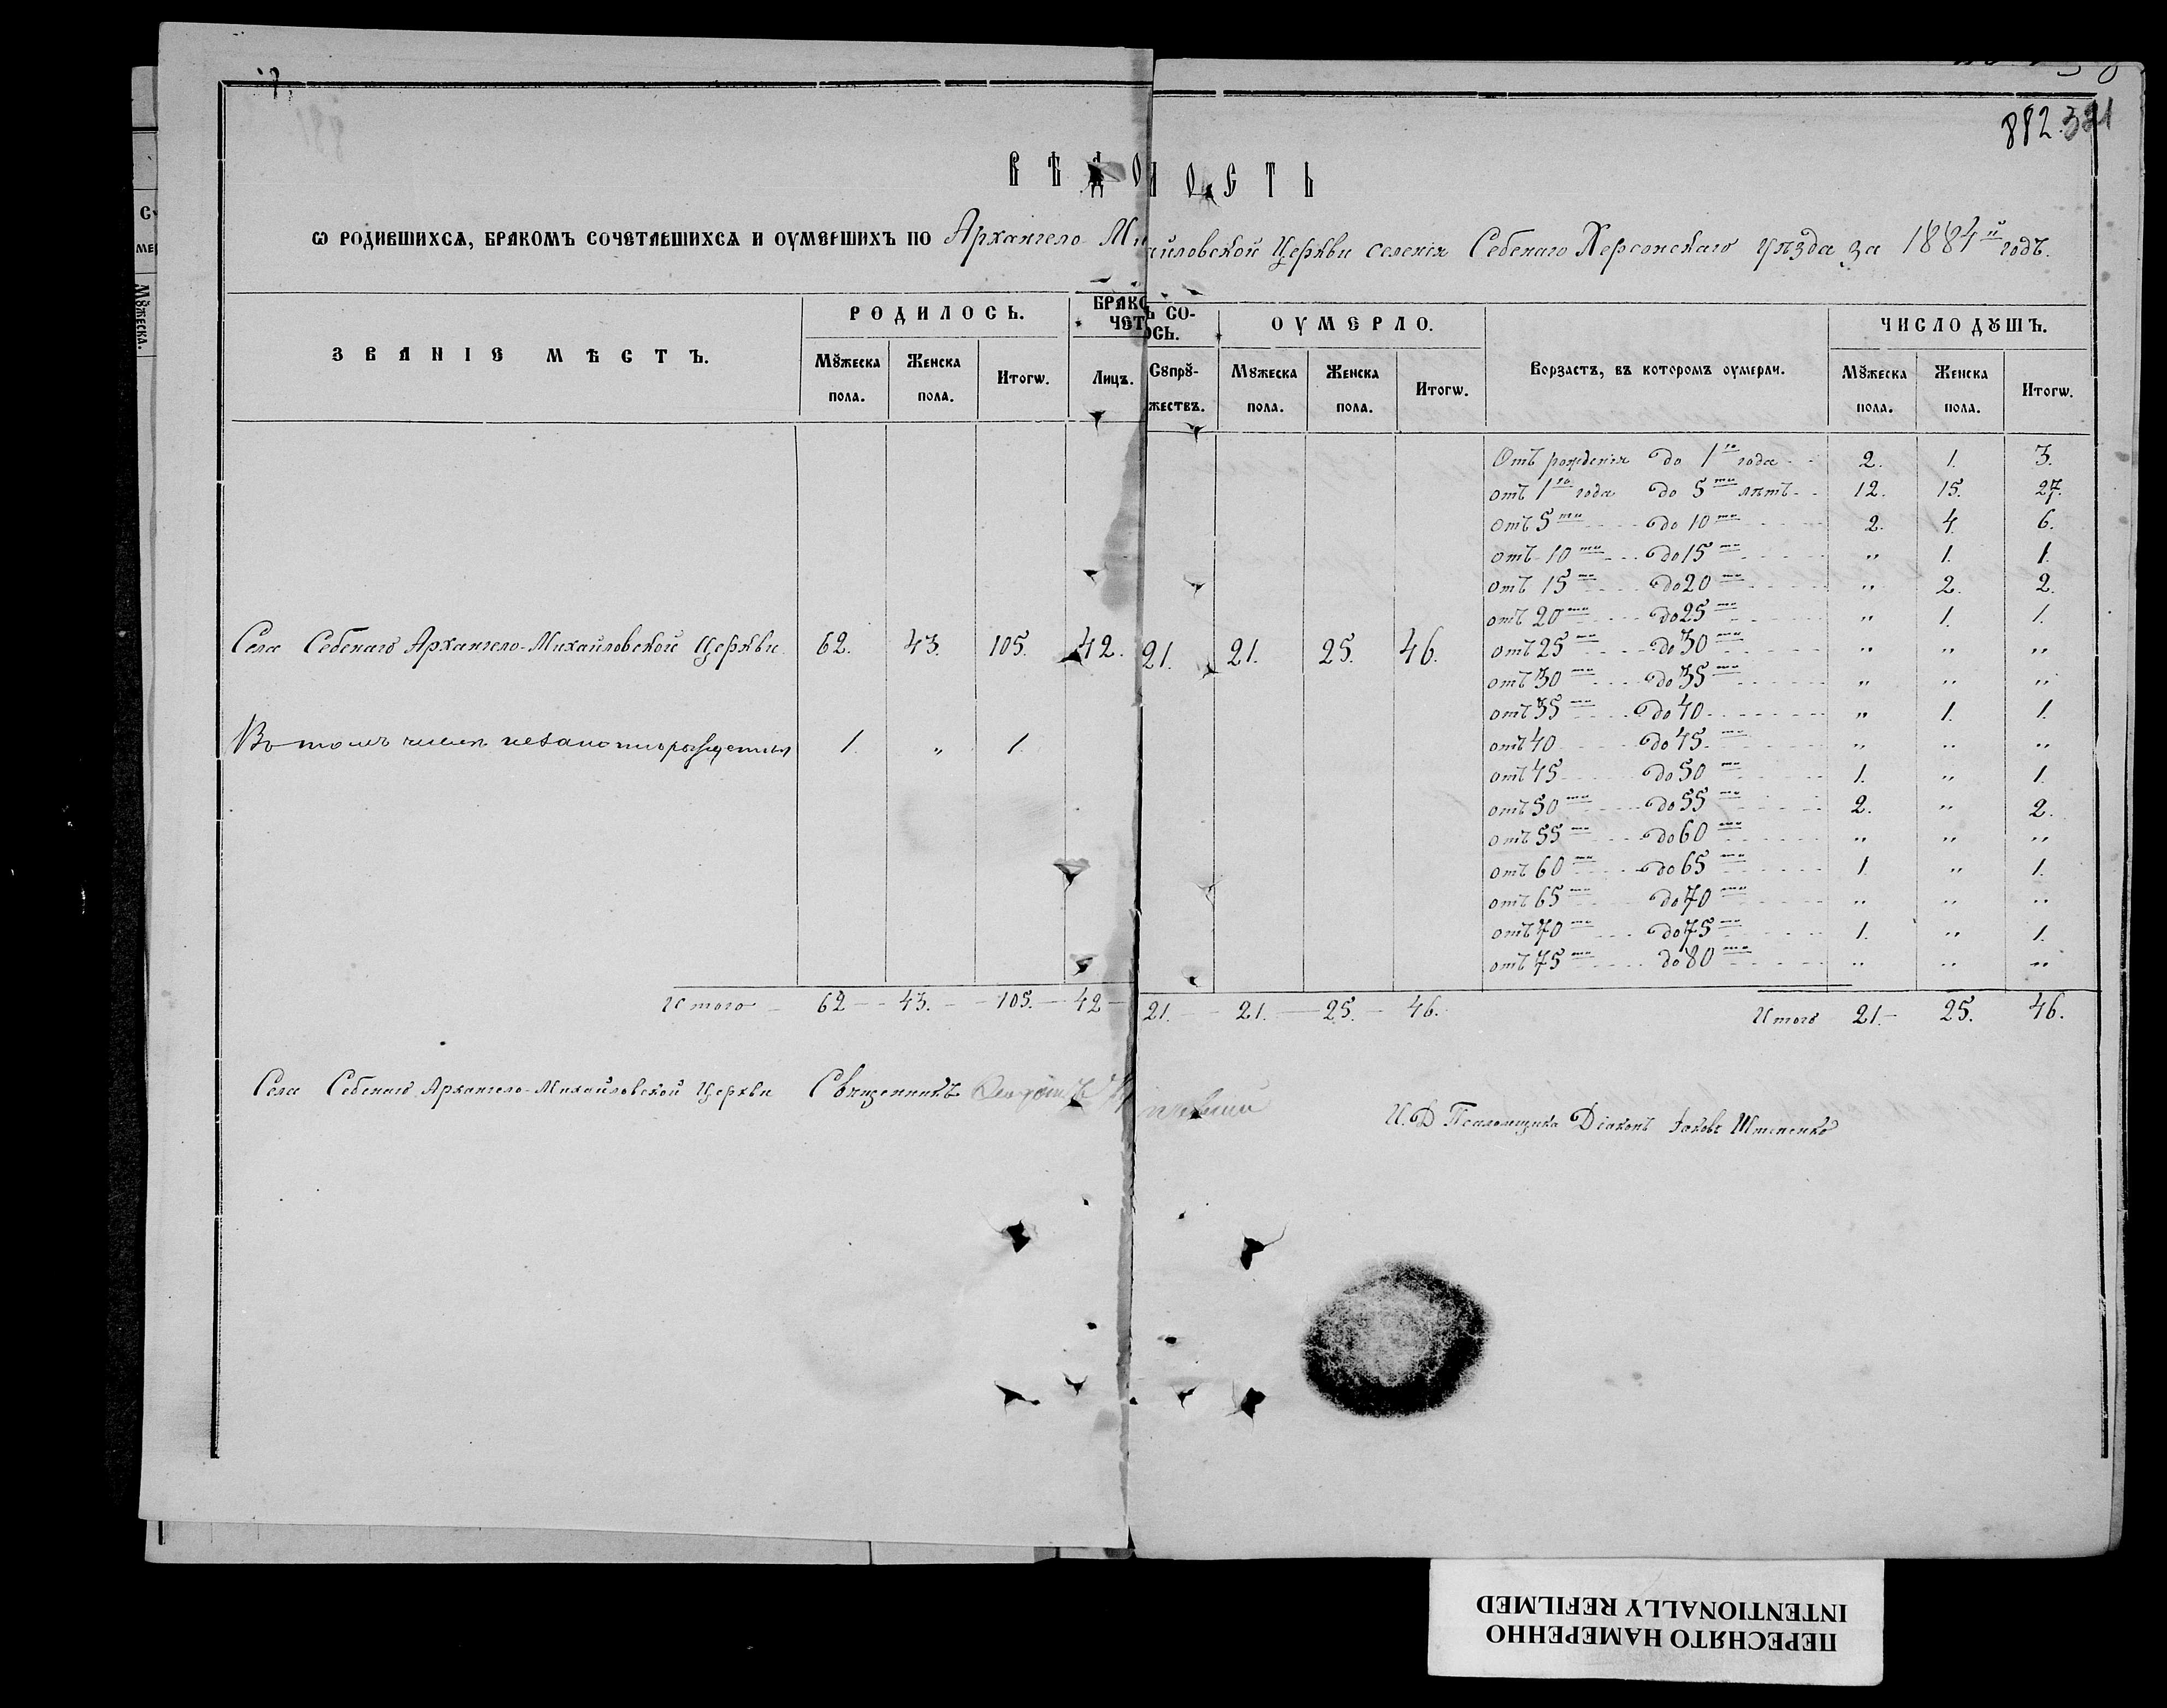 882. 321
ВѢДОМОСТЬ
Ѡ РОДИВШИХСѦ, БРАКОМЪ СОЧЕТАВШИХСѦ И ОУМЕРШИХЪ ПО Архангело-Михайловской Церкви селенія Себенаго Херсонскаго уѣзда за 1884й годъ.
ЗВАНІЕ МѢСТЪ. РОДИЛОСЬ. БРАКОМЪ СО- ОУМЕРЛО. Ворзастъ, въ которомъ оумерли. ЧИСЛО ДꙊШЪ.
ЧЕТ ОСЬ.
Мꙋжеска Женска Итогѡ. Лицъ. Сꙋпрꙋ- Мꙋжеска Женска Итогѡ. Мꙋжеска Женска Итогѡ.
пола. пола. жествъ. пола. пола. пола. пола.
Отъ рожденія до 1го года 2. 1. 3.
отъ 1го года до 5ти лѣтъ 12. 15. 27.
отъ 5ти до 10ти 2. 4. 6.
отъ 10ти до 15ти " 1. 1.
отъ 15ти до 20ти " 2. 2.
отъ 20ти до 25ти " 1. 1.
Села Себенаго Архангело-Михайловской Церкви 62. 43. 105. 42. 21. 21. 25. 46. отъ 25ти до 30ти " " "
отъ 30ти до 35ти " " "
отъ 35ти до 40 " 1. 1.
Въ томъ числѣ незаконнорожденныхъ 1. " 1. отъ 40 до 45ти " " "
отъ 45 до 50ти 1. " 1.
отъ 50ти до 55ти 2. " 2.
отъ 55ти до 60ти " " "
отъ 60ти до 65ти 1. " 1.
отъ 65ти до 70ти " " "
отъ 70ти до 75ти 1. " 1.
отъ 75ти до 80ти " " "
Итого 62 43. 105. 42 21. 21. 25. 46. Итого 21 25. 46.
Села Себенаго Архангело-Михайловской Церкви Священникъ
И. Д. Псаломщика Діаконъ Іаковъ
ПЕРЕСНЯТО НАМЕРЕННО
INTENTIONALLY REFILMED